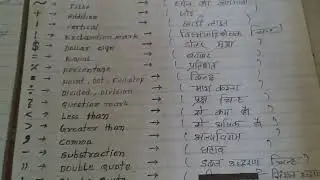 ~ → Tilde → (
+ → Addition → ( जोड़
| → Vertical → ( खड़ी लाइन
! → Exclamation mark → ( विस्मयादिबोधक चिन्ह )
$ → Dollar sign → ( डॉलर मुद्रा
= → Equal → ( बराबर
% → percentage → ( प्रतिशत
. → Point, Dot, Fullstop → ( बिन्दु
÷ → Divided, Division → ( भाग करना
? → Question mark → ( प्रश्न चिन्ह )
< → Less than → ( से कम है )
> → Greater than → ( से अधिक है )
, → Comma → ( अल्पविराम
- → Substraction → ( घटाव
" → Double quote → ( डबल उद्धरण चिन्ह )